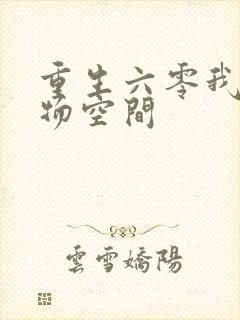 重生六零我
物空間
雲雪嬌陽